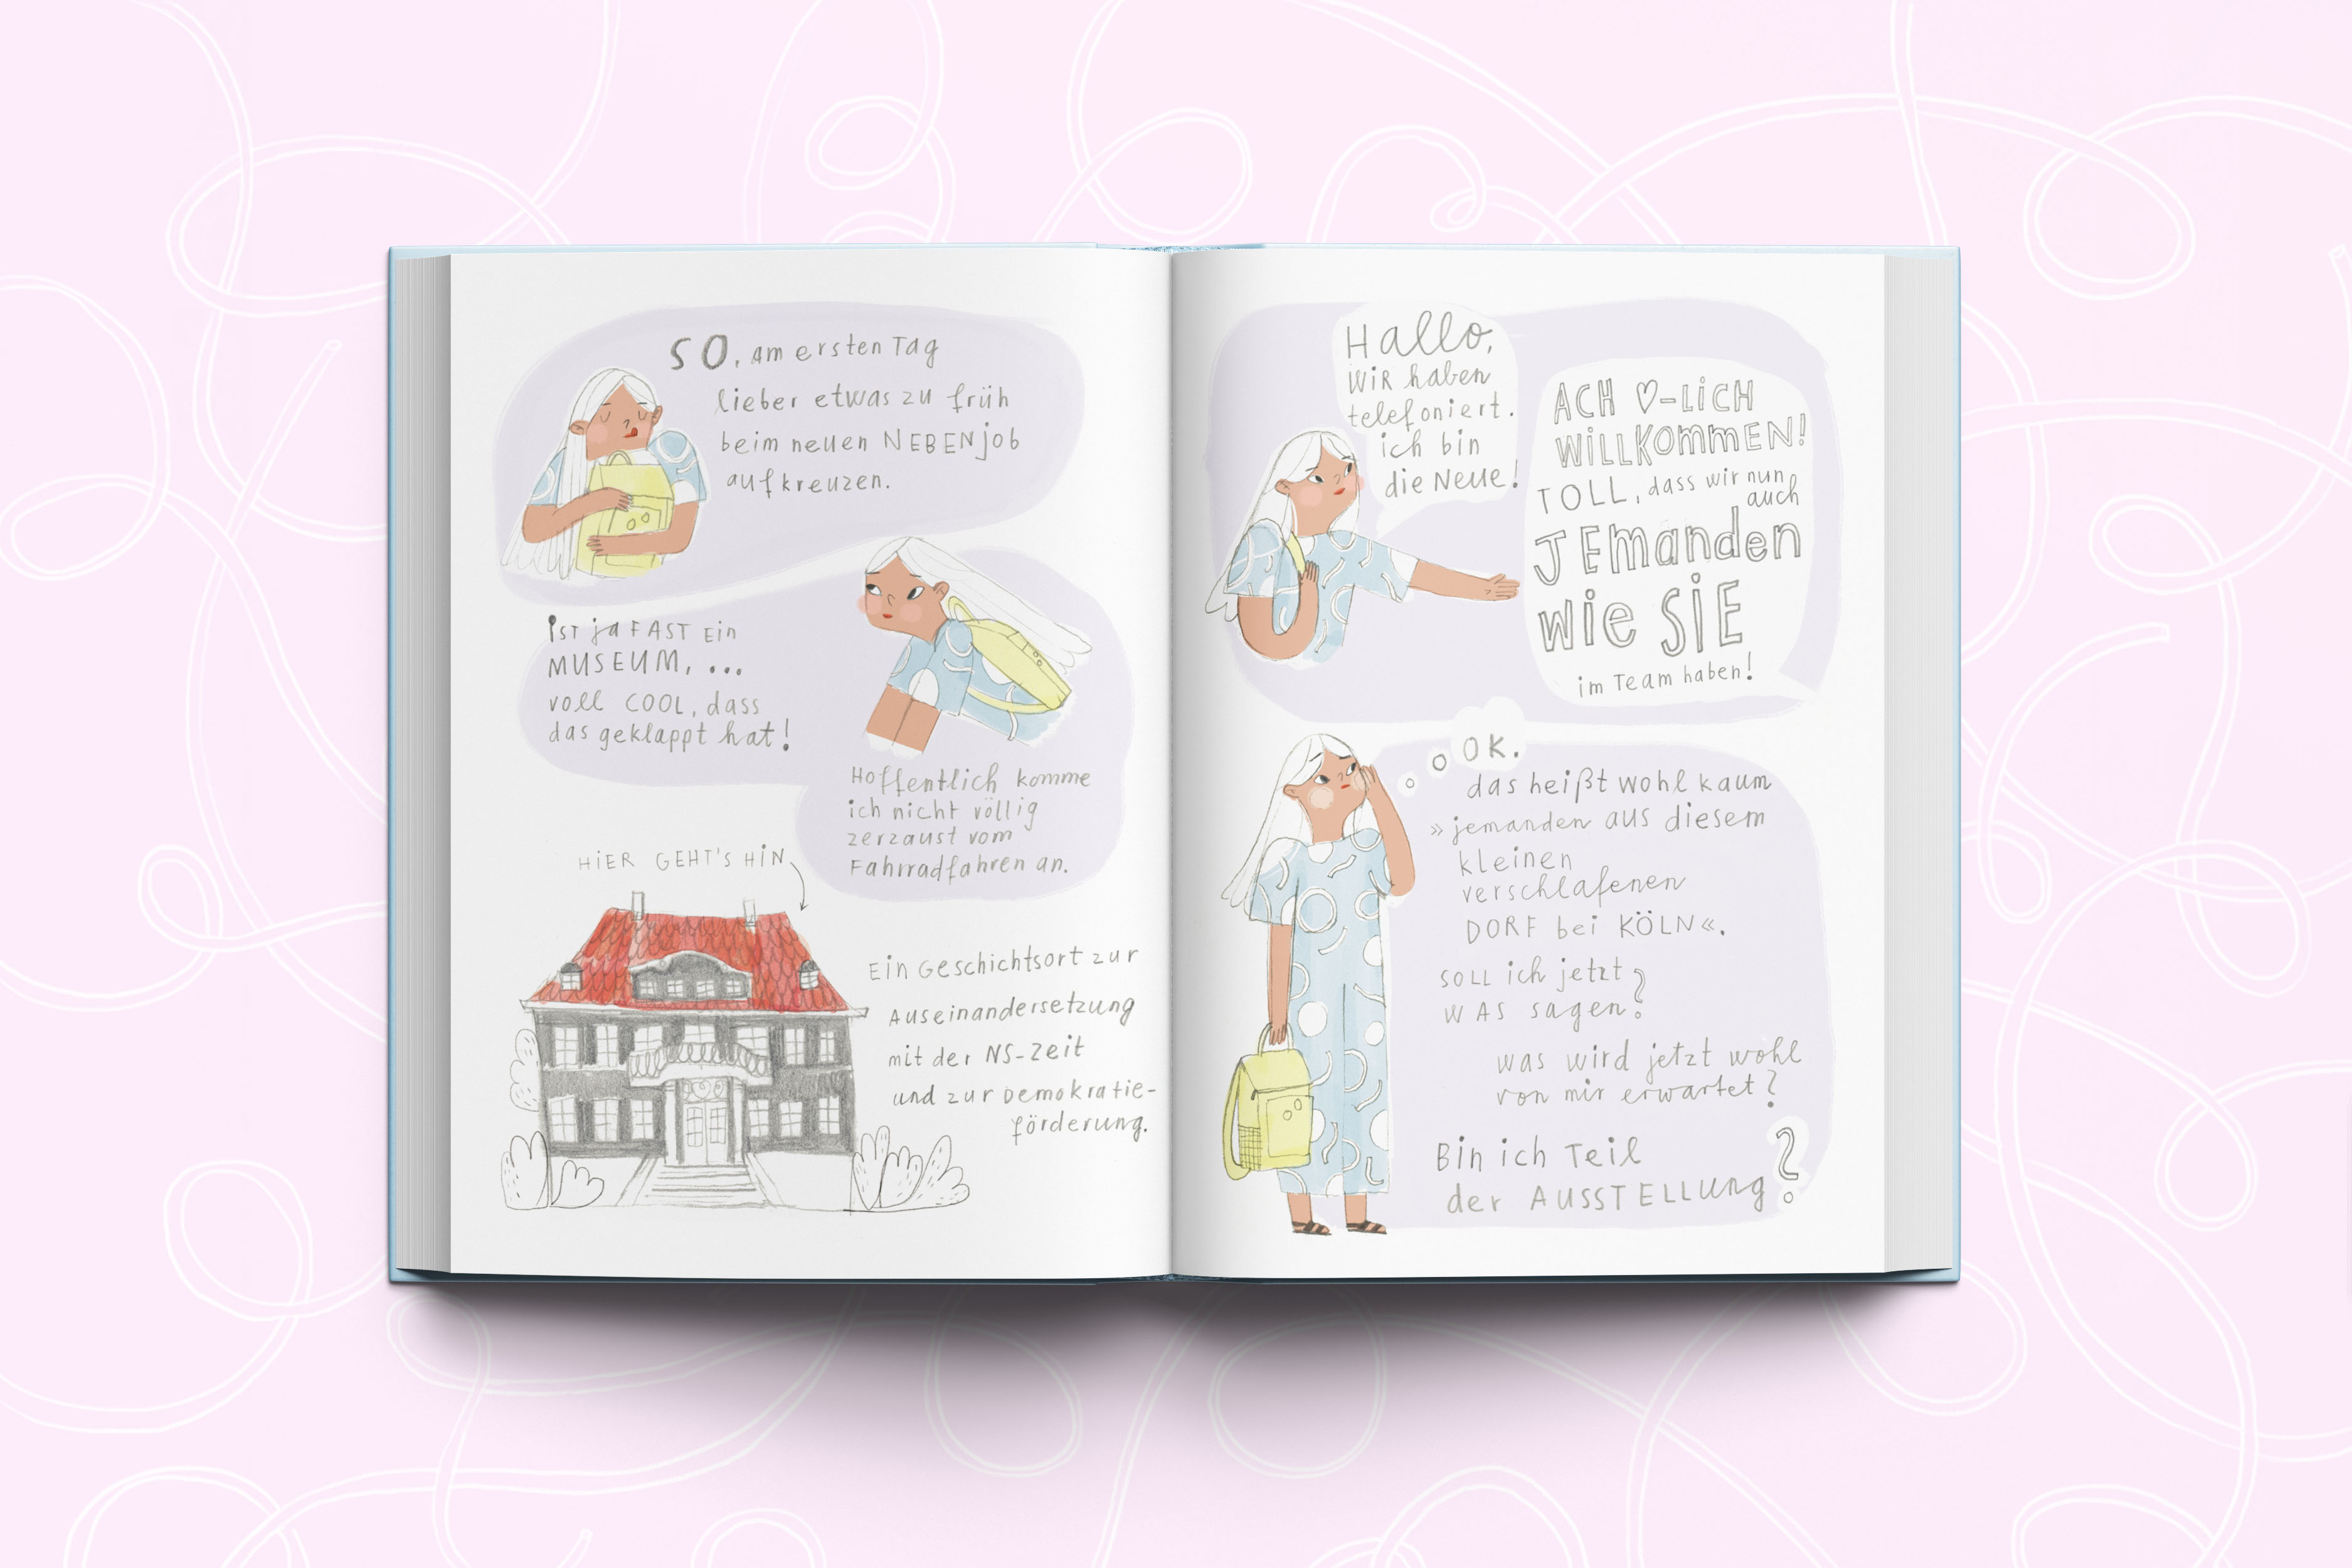 SO, am ersten Tag
lieber etwas zu früh
beim neuen NEBENjob
aufkreuzen.
ist ja FAST Ein
MUSEUM, ...
voll COOL, dass
das geklappt hat!
Hoffentlich komme
ich nicht völlig
zerzaust vom
Fahrradfahren an.
HiER GEHT'S HiN
Ein Geschichtsort zur
Auseinandersetzung
mit der NS-Zeit
und zur Demokratie-
förderung.
Hallo,
WiR haben
telefoniert.
ich bin
die Neue!
ACH ♡-LiCH
WiLLKOmmEN!
TOLL, dass wir nun
auch
JEmanden
wie SiE
im Team haben!
OK.
das heißt wohl kaum
»jemanden aus diesem
kleinen
verschlafenen
DORF bei KÖLN«.
SOLL ich jetzt
WAS sagen?
was wird jetzt wohl
von mir erwartet?
Bin ich Teil
der AUSSTELLUng?